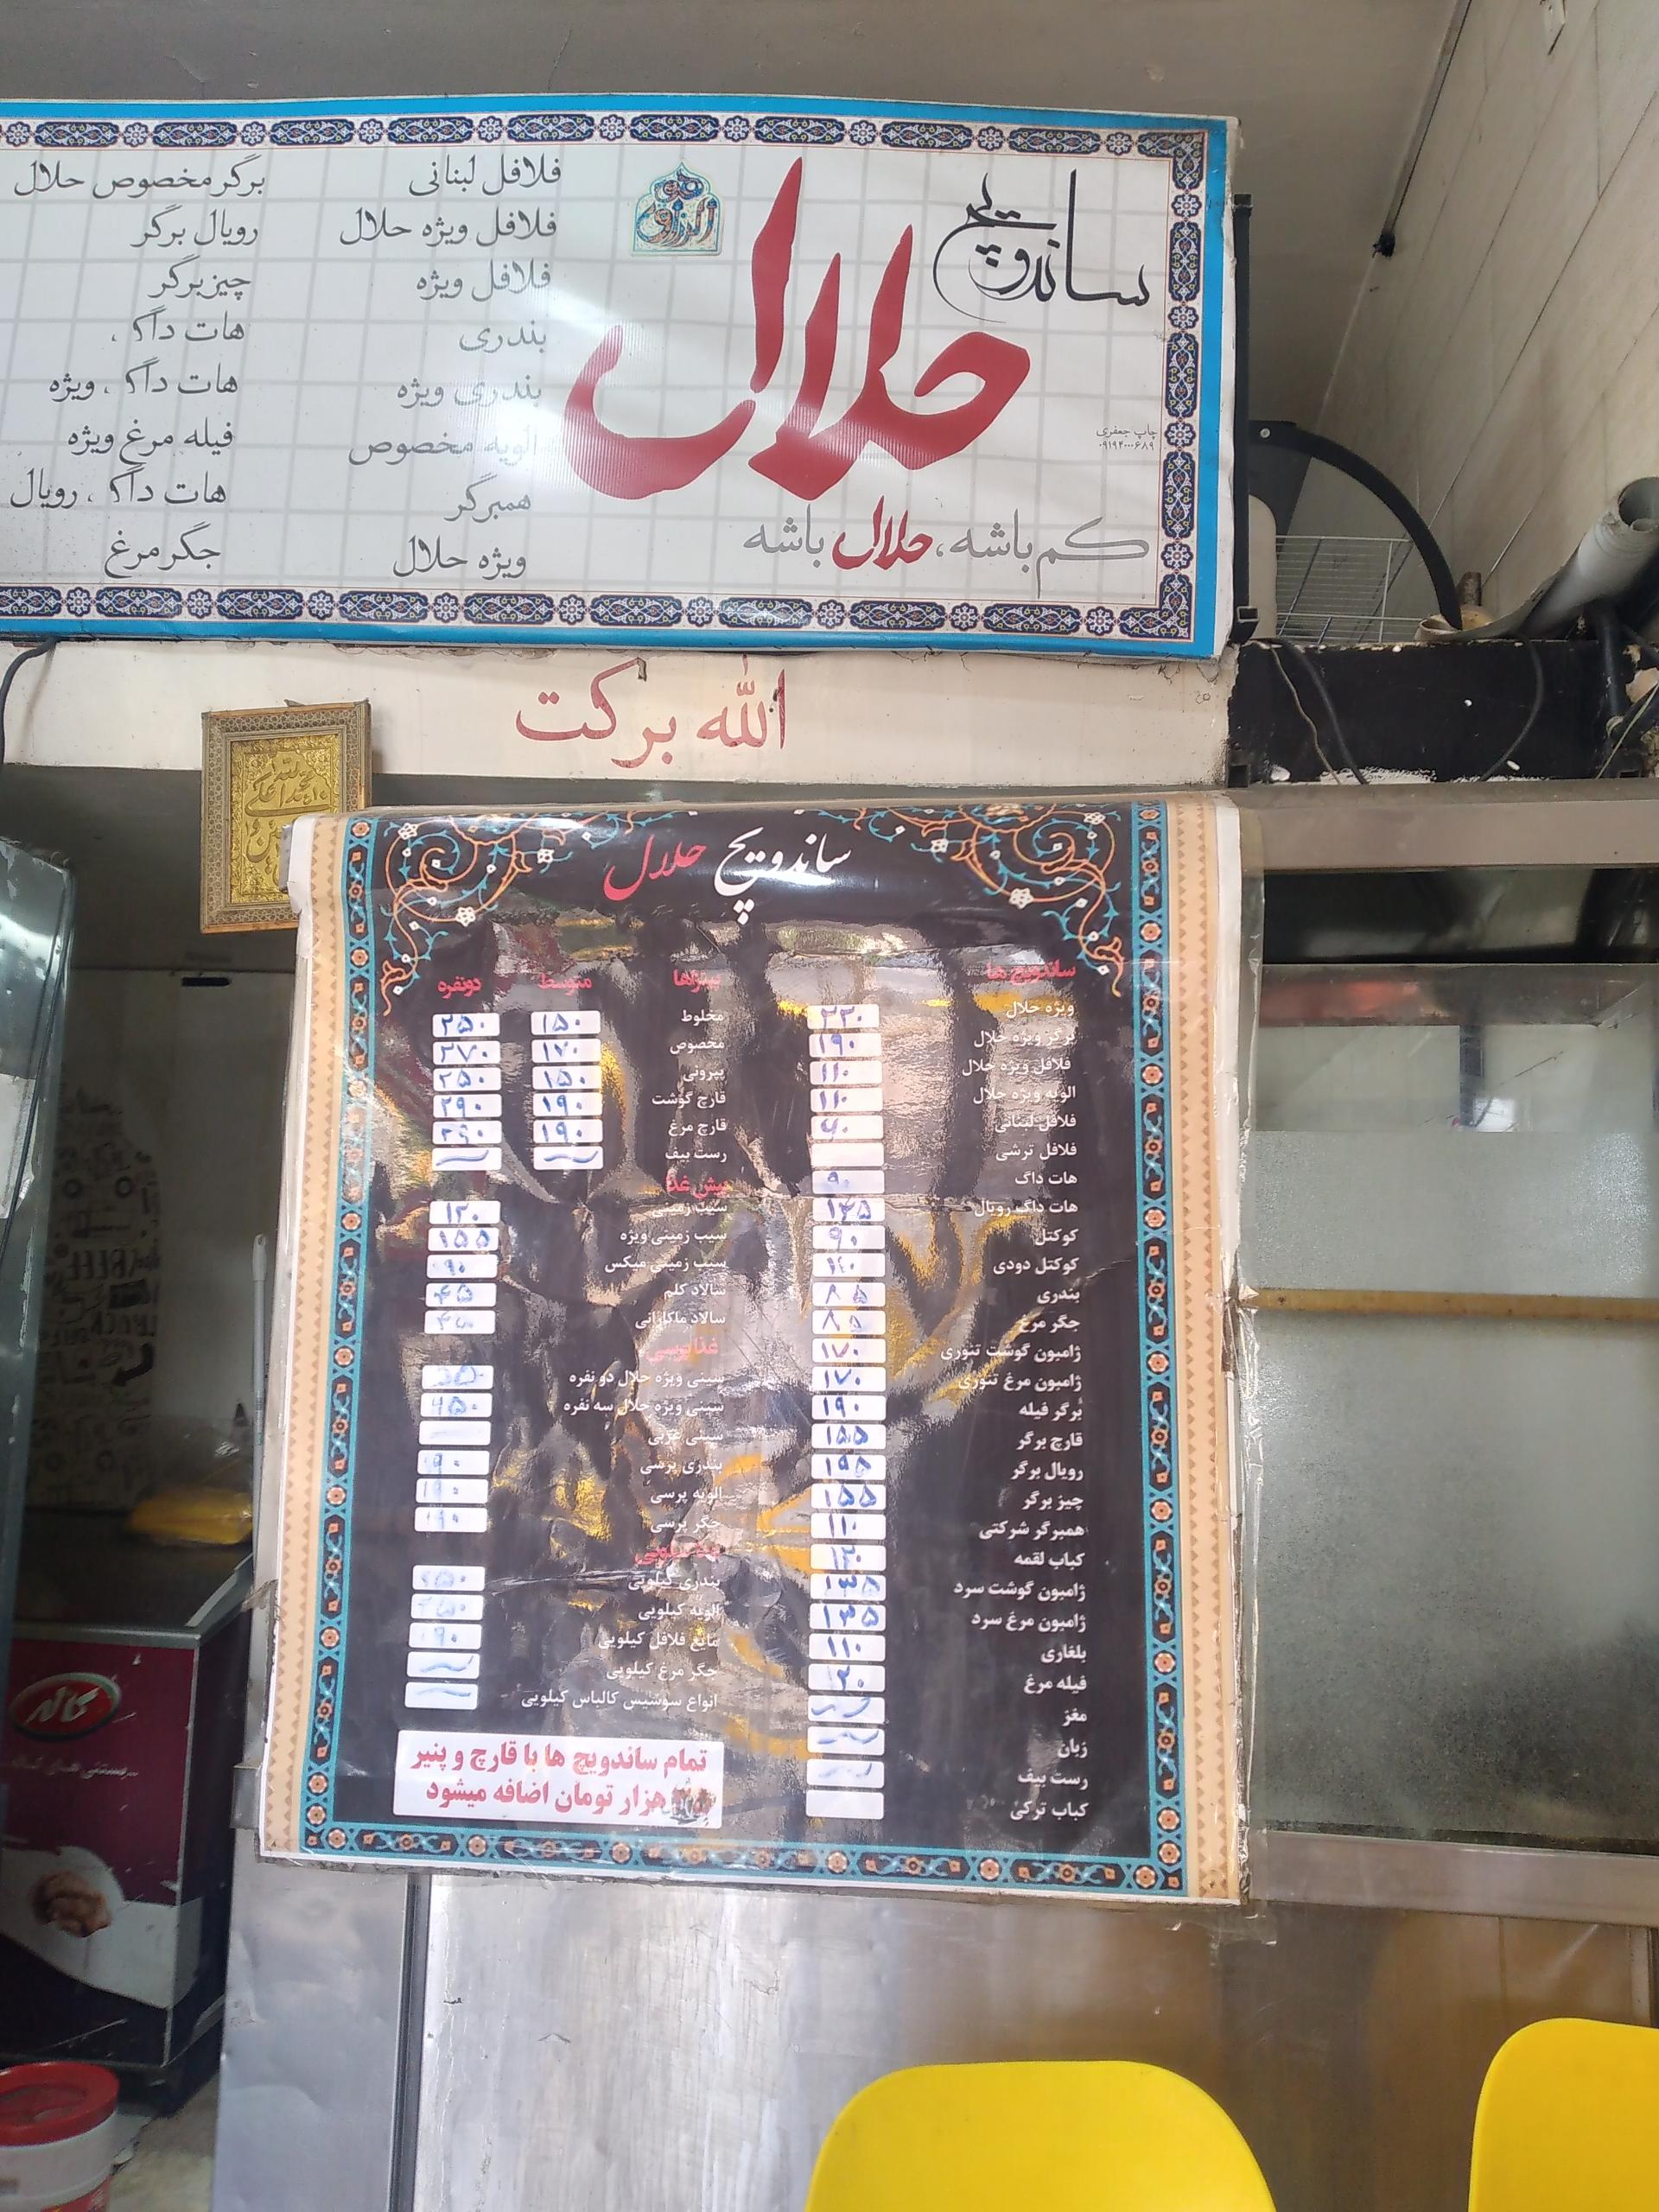 ساندویچ
حلال
کم باشه، حلال باشه
چاپ جعفری
فلافل لبنانی
فلافل ویژه حلال
فلافل ویژه
بندری
بندری ویژه
الویه مخصوص
همبرگر
ویژه حلال
برگر مخصوص حلال
رویال برگر
چیزبرگر
هات داگ
هات داگ ویژه
فیله مرغ ویژه
هات داگ رویال
جگر مرغ
الله برکت
ساندویچ حلال
ساندویچ ها
ویژه حلال ۲۲۰
برگر ویژه حلال ۱۹۰
فلافل ویژه حلال ۱۱۰
الویه ویژه حلال ۱۱۰
فلافل لبنانی
فلافل ترشی
هات داگ ۹۰
هات داگ رویال ۱۳۵
کوکتل ۹۰
کوکتل دودی
بندری ۸۵
جگر مرغ ۸۵
ژامبون گوشت تنوری ۱۷۰
ژامبون مرغ تنوری ۱۷۰
برگر فیله ۱۹۰
قارچ برگر ۱۵۵
رویال برگر ۱۹۵
چیز برگر ۱۵۵
همبرگر شرکتی ۱۱۰
کباب لقمه
ژامبون گوشت سرد ۱۳۵
ژامبون مرغ سرد ۱۳۵
بلغاری ۱۱۰
فیله مرغ
مغز
زبان
رست بیف
کباب ترکی
پیتزاها متوسط دونفره
مخلوط ۱۵۰ ۲۵۰
مخصوص ۱۷۰ ۲۷۰
پپرونی ۱۵۰ ۲۵۰
قارچ گوشت ۱۹۰ ۲۹۰
قارچ مرغ ۱۹۰ ۲۹۰
رست بیف
پیش غذا
سیب زمینی ۱۲۰
سیب زمینی ویژه ۱۵۵
سیب زمینی میکس
سالاد کلم ۴۵
سالاد ماکارانی
غذا پرسی
سینی ویژه حلال دو نفره
سینی ویژه حلال سه نفره
سینی عربی
بندری پرسی
الویه پرسی
جگر پرسی ۱۹۰
بندری کیلویی
الویه کیلویی
مایع فلافل کیلویی ۱۹۰
جگر مرغ کیلویی
انواع سوسیس کالباس کیلویی
تمام ساندویچ ها با قارچ و پنیر
هزار تومان اضافه میشود
کاله